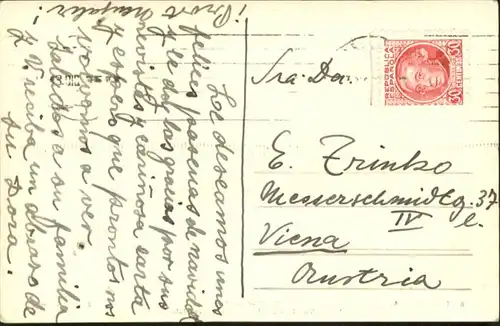 Le deseamos unas
felices pascuas de navidad
y le doy las gracias por sus
revistas y cariñosa carta
Y espero que prontos nos
volvamos a ver.
Saludos a su familia
y V. reciba un abrazo de
su Dora.
¡Prost Neujahr!
Sra. Da.
E. Trinko
Messerschmidtg. 37
IV e.
Viena
Austria
REPUBLICA
ESPAÑOLA
30 CENTIMOS 30